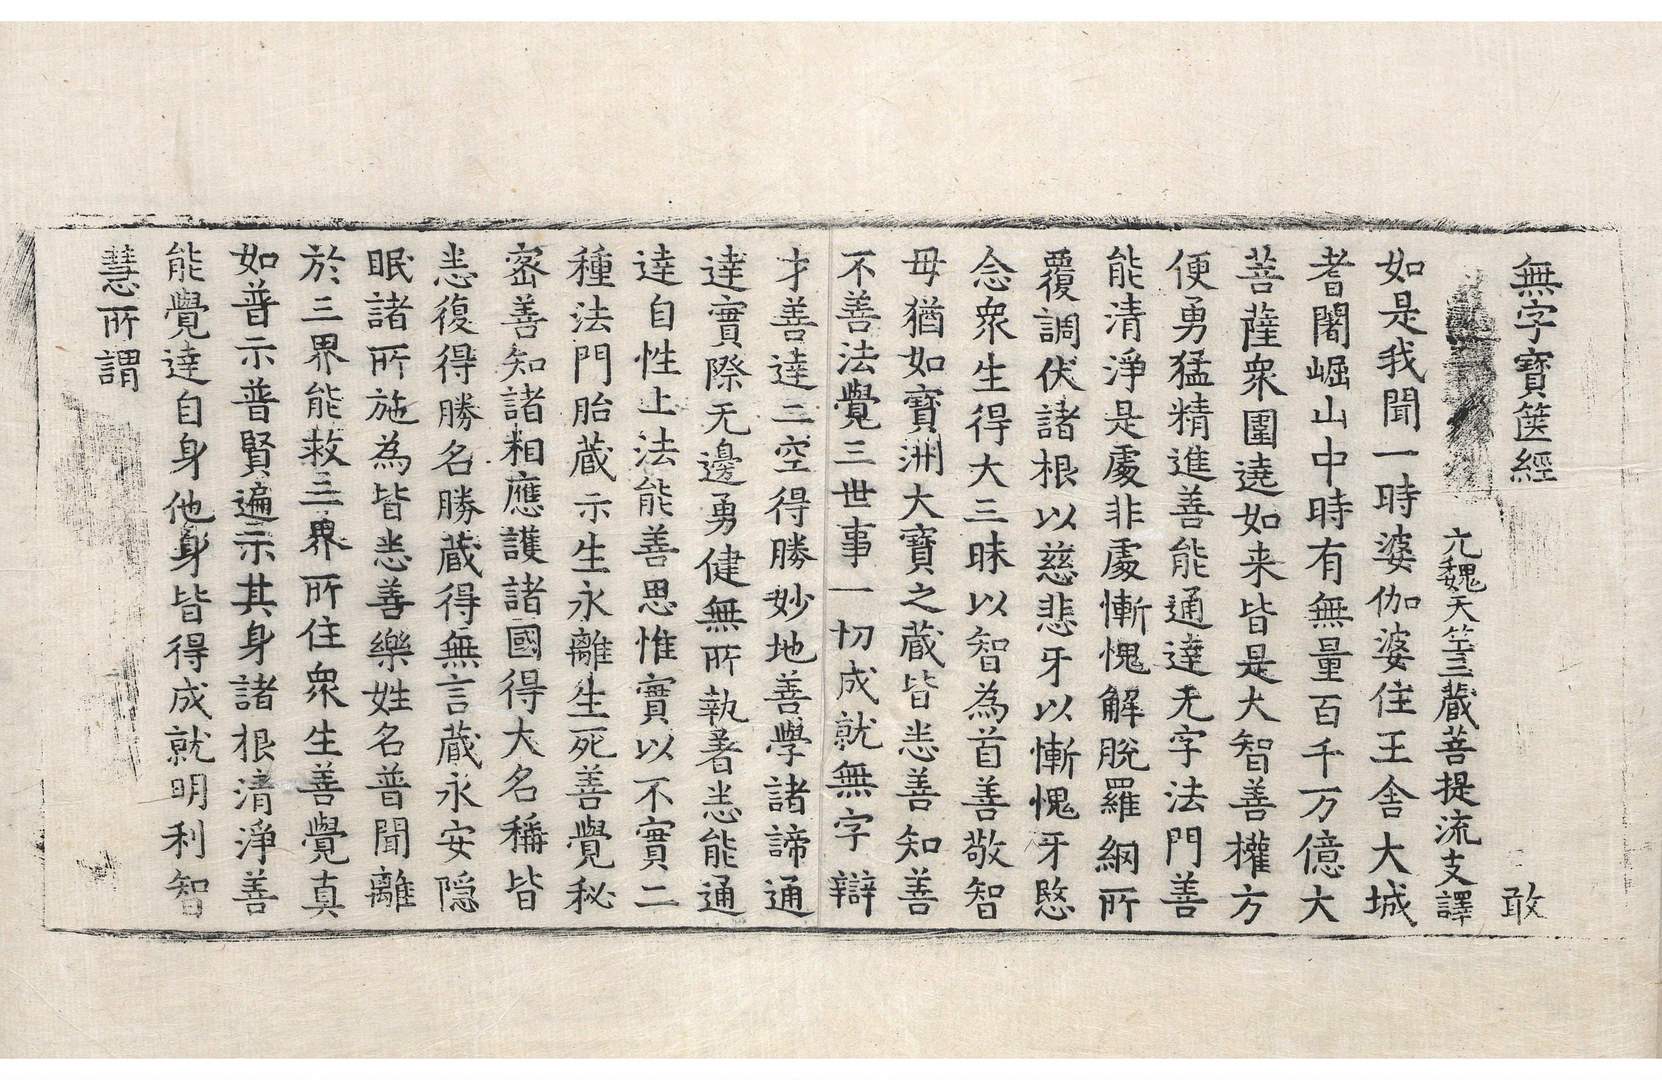 無字寶篋經　敢
元魏天竺三藏菩提流支譯
如是我聞一時婆伽婆住王舍大城
耆闍崛山中時有無量百千万億大
菩薩衆圍遶如来皆是大智善權方
便勇猛精進善能通達无字法門善
能清淨是處非處慚愧解脫羅網所
覆調伏諸根以慈悲牙以慚愧牙愍
念衆生得大三昧以智為首善敬智
母猶如寶洲大寶之藏皆悉善知善
不善法覺三世事一切成就無字辯
才善達二空得勝妙地善學諸諦通
達實際无邊勇健無所執著悉能通
達自性止法能善思惟實以不實二
種法門胎藏示生永離生死善覺秘
密善知諸相應護諸國得大名稱皆
悉復得勝名勝藏得無言藏永安隠
眠諸所施為皆悉善樂姓名普聞離
於三界能救三界所住衆生善覺真
如普示普賢遍示其身諸根清淨善
能覺達自身他身皆得成就明利智
慧所謂